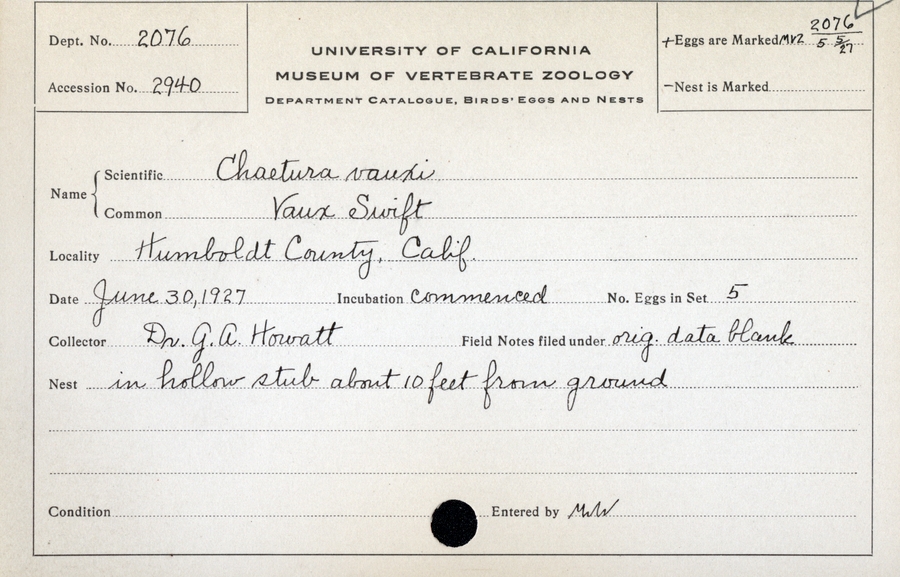 Dept. No. 2076
Accession No. 2940
UNIVERSITY OF CALIFORNIA
MUSEUM OF VERTEBRATE ZOOLOGY
DEPARTMENT CATALOGUE, BIRDS' EGGS AND NESTS
+Eggs are Marked MVZ 2076
5 5/27
-Nest is Marked
Name
Scientific Chaetura vauxi
Common Vaux Swift
Locality Humboldt County, Calif.
Date June 30, 1927 Incubation commenced No. Eggs in Set 5
Collector Dr. G. A. Howatt Field Notes filed under orig. data blank
Nest in hollow stub about 10 feet from ground
Condition Entered by